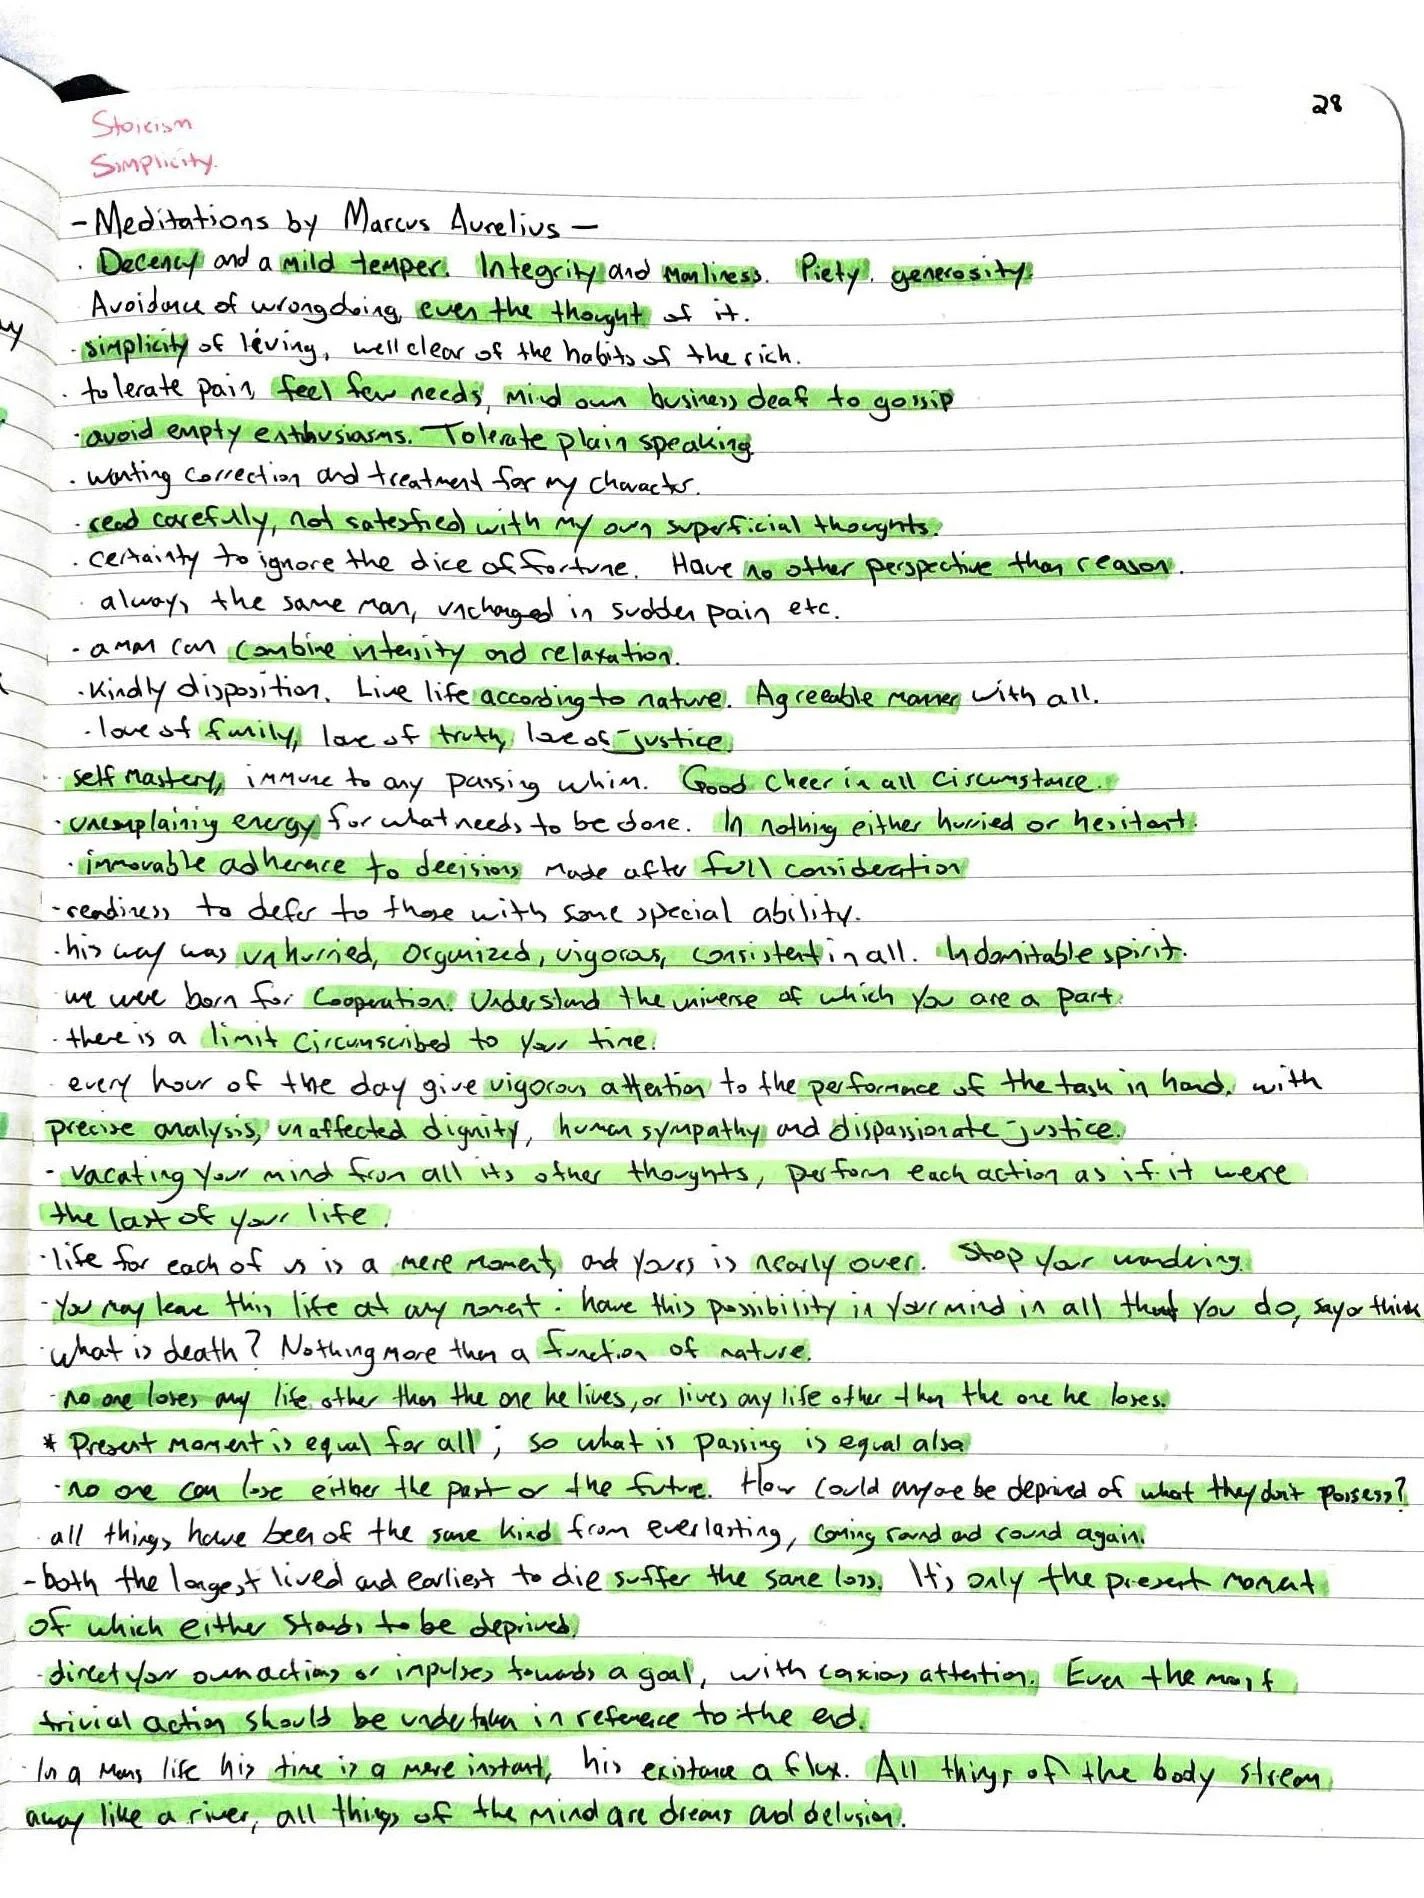 28
Stoicism
Simplicity.
- Meditations by Marcus Aurelius -
· Decency and a mild temper. Integrity and manliness. Piety, generosity.
Avoidance of wrongdoing, even the thought of it.
· simplicity of living, well clear of the habits of the rich.
· tolerate pain, feel few needs, mind own business, deaf to gossip
· avoid empty enthusiasms. Tolerate plain speaking
· wanting correction and treatment for my character.
· read carefully, not satesfied with my own superficial thoughts.
· certainty to ignore the dice of fortune. Have no other perspective than reason.
· always the same man, unchanged in sudden pain etc.
· a man can combine intensity and relaxation.
· Kindly disposition. Live life according to nature. Agreeable manner with all.
· love of family, love of truth, love of justice.
· self mastery, immune to any passing whim. Good cheer in all circumstance.
· uncomplaining energy for what needs to be done. In nothing either hurried or hesitant.
· immovable adherence to decisions made after full consideration
· readiness to defer to those with some special ability.
· his way was unhurried, organized, vigorous, consistent in all. Indomitable spirit.
· we were born for cooperation. Understand the universe of which you are a part.
· there is a limit circumscribed to your time.
· every hour of the day give vigorous attention to the performance of the task in hand, with
precise analysis, unaffected dignity, human sympathy and dispassionate justice.
- vacating your mind from all its other thoughts, perform each action as if it were
the last of your life.
· life for each of us is a mere moment, and yours is nearly over. Stop your wandering.
· You may leave this life at any moment: have this possibility in your mind in all that you do, say or think
· what is death? Nothing more than a function of nature.
· no one loses any life other than the one he lives, or lives any life other than the one he loses.
* Present moment is equal for all; so what is passing is equal also
· no one can lose either the past or the future. How could anyone be deprived of what they don't possess?
· all things have been of the same kind from everlasting, coming round and round again.
- both the longest lived and earliest to die suffer the same loss. It's only the present moment
of which either stands to be deprived.
· direct your own actions or impulses towards a goal, with conscious attention. Even the most
trivial action should be undertaken in reference to the end.
· In a mans life his time is a mere instant, his existance a flux. All things of the body stream
away like a river, all things of the mind are dreams and delusion.